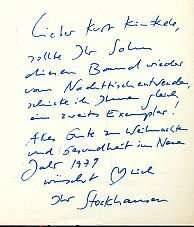 Lieber Kurt
sollte Ihr Sohn
diesen Band wieder
vom Nachttisch entwenden,
schicke ich Ihnen gleich
ein zweites Exemplar!
Alles Gute zu Weihnacht
und Gesundheit im Neuen
Jahr 1979
wünscht
Ihr Stockhausen